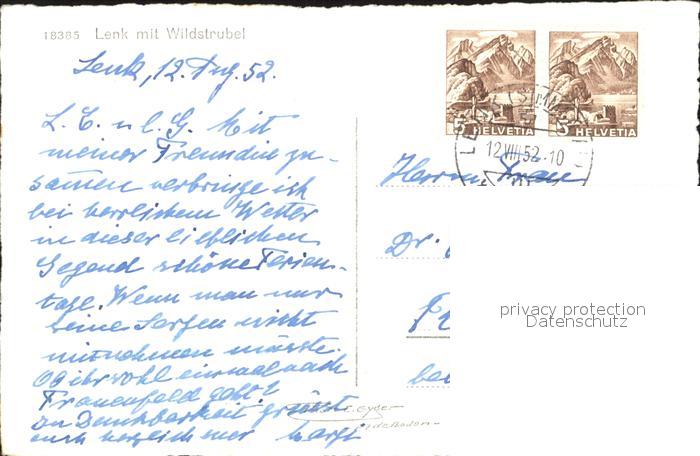 18385 Lenk mit Wildstrubel
Lenk, 12. Aug. 52.
L. E. u l. G. Mit
meiner Freundin zu-
samen verbringe ich
bei herrlichem Wetter
in dieser lieblichen
Gegend schöne Ferien-
tage. Wenn man nur
seine Sorgen nicht
mitnehmen müsste.
Ob ihr wohl einmal nach
Frauenfeld geht?
In Dankbarkeit grüsst
euch herzlich
5 HELVETIA
5 HELVETIA
12.VIII.52.-10
Herrn Frau
Dr.
privacy protection
Datenschutz